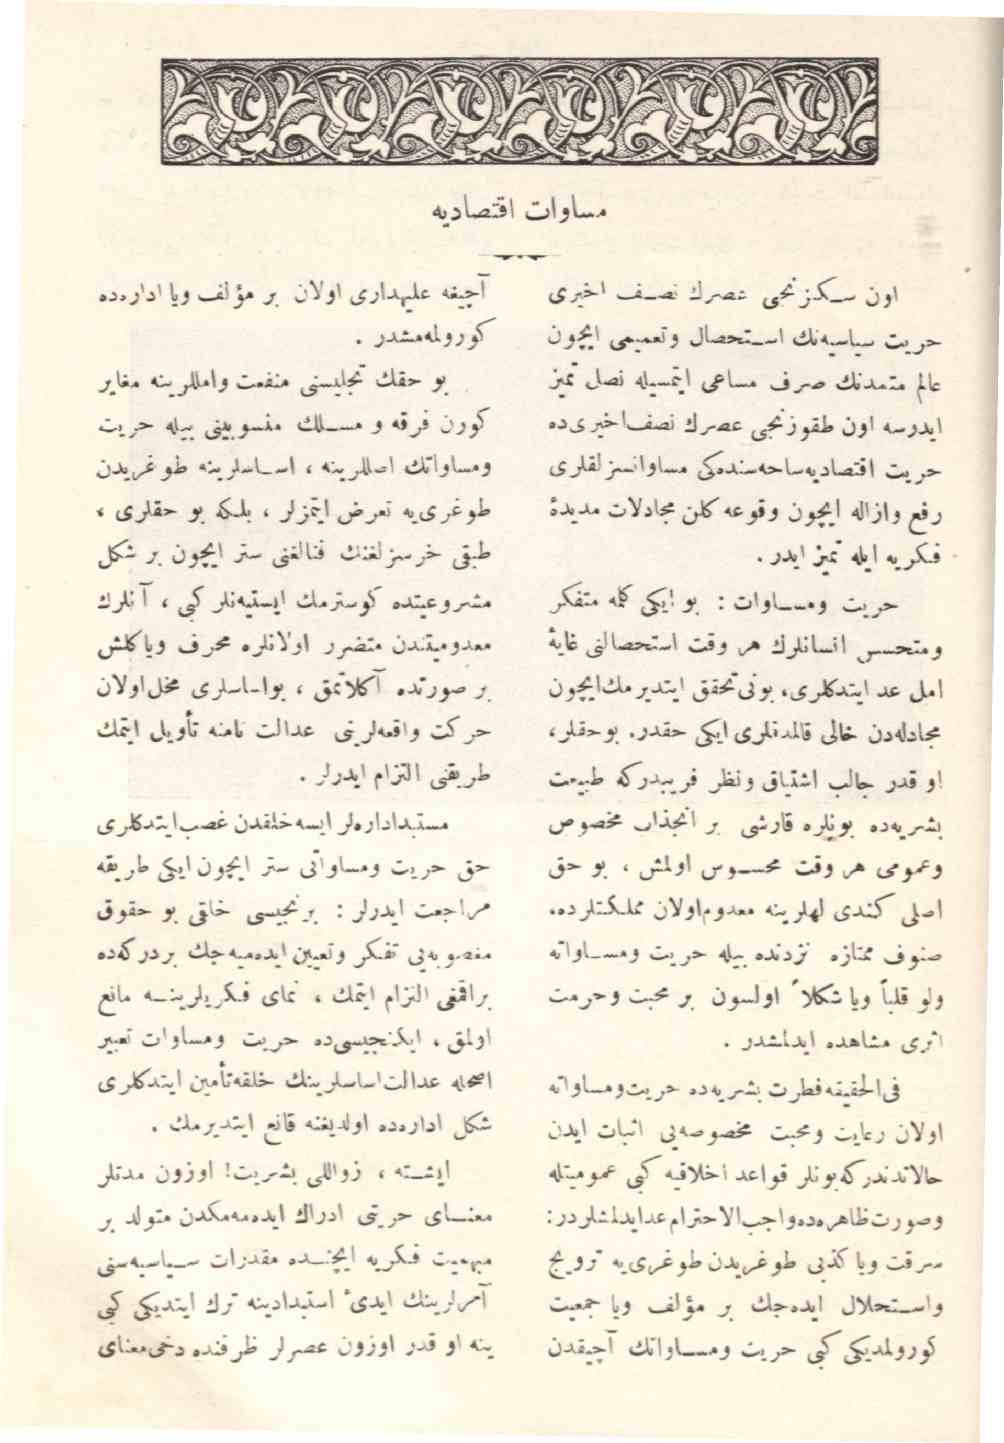 مساوات اقتصادیه
اون سکزنجی عصرك نصف اخیری
حریت سیاسیه‌نك استحصال وتعمیمی ایچون
عالم متمدنك صرف مساعی ایتمسیله نصل تمیز
ایدرسه اون طقوزنجی عصرك نصف‌اخیری‌ده
حریت اقتصادیه‌ساحه‌سنده‌کی مساواتسزلقلری
رفع وازاله ایچون وقوعه کلن مجادلات مدیدهٔ
فکریه ایله تمیز ایدر.
حریت ومساوات : بو ایکی کله متفکر
ومتحسس انسانلرك هر وقت استحصالنی غایهٔ
امل عد ایتدکلری، بونی‌تحقق ایتدیرمك‌ایچون
مجادله‌دن خالی قالمدقلری ایکی حقدر. بوحقلر،
او قدر جالب اشتیاق ونظر فریبدرکه طبیعت
بشریه‌ده بونلره قارشی بر انجذاب مخصوص
وعمومی هر وقت محسوس اولمش ، بو حق
اصلی کندی لهلرینه معدوم‌اولان مملکتلرده،
صنوف ممتازه نزدنده بیله حریت ومساواته
ولو قلباً ویا شکلاً اولسون بر محبت وحرمت
اثری مشاهده ایدلمشدر .
فی‌الحقیقه‌فطرت بشریه‌ده حریت‌ومساواته
اولان رعایت ومحبت مخصوصه‌یی اثبات ایدن
حالاتدندرکه‌بونلر قواعد اخلاقیه کبی عمومیتله
وصورت‌ظاهره‌ده‌واجب‌الاحترام‌عدایدلمشلردر:
سرقت ویا کذبی طوغریدن طوغری‌یه ترویج
واستحلال ایده‌جك بر مؤلف ویا جمعیت
کورولمدیکی کبی حریت ومساواتك آچیقدن
آچیغه علیهداری اولان بر مؤلف ویا اداره‌ده
کورولمه‌مشدر .
بو حقك تجلیسنی منفعت واملدرینه مغایر
کورن فرقه و مسلك منسوبینی بیله حریت
ومساواتك اصللرینه ، اساسلرینه طوغریدن
طوغری‌یه تعرض ایتمزلر ، بلکه بو حقلری ،
طبقی خرسزلغنك فنالغنی ستر ایچون بر شکل
مشروعیتده کوسترمك ایستیه‌نلر کبی ، آنلرك
معدومیتندن متضرر اولانلره محرف ویاکلش
بر صورتده آکلاتمق ، بواساسلری مخل‌اولان
حرکت واقعه‌لرینی عدالت نامنه تأویل ایتمك
طریقنی التزام ایدرلر .
مستبداداره‌لر ایسه‌خلقدن غصب‌ایتدکلری
حق حریت ومساواتی ستر ایچون‌ایکی طریقه
مراجعت ایدرلر : برنجیسی خلقی بو حقوق
مغصوبه‌یی تفکر وتعیین ایده‌میه‌جك بردرکه‌ده
براقمغی التزام ایتمك ، نمای فکریلرینه مانع
اولمق ، ایکنجیسی‌ده حریت ومساوات تعبیر
اصحله عدالت‌اساسلرینك خلقه‌تأمین ایتدکلری
شکل اداره‌ده اولدیغنه قانع ایتدیرمك .
ایشته ، زواللی بشریت! اوزون مدتلر
معنای حریتی ادراك ایده‌مه‌مکدن متولد بر
مبهمیت فکریه ایچنده مقدرات سیاسیه‌سنی
آمرلرینك ایدیٔ استبدادینه ترك ایتدیکی کبی
ینه او قدر اوزون عصرلر ظرفنده دخی‌معنای